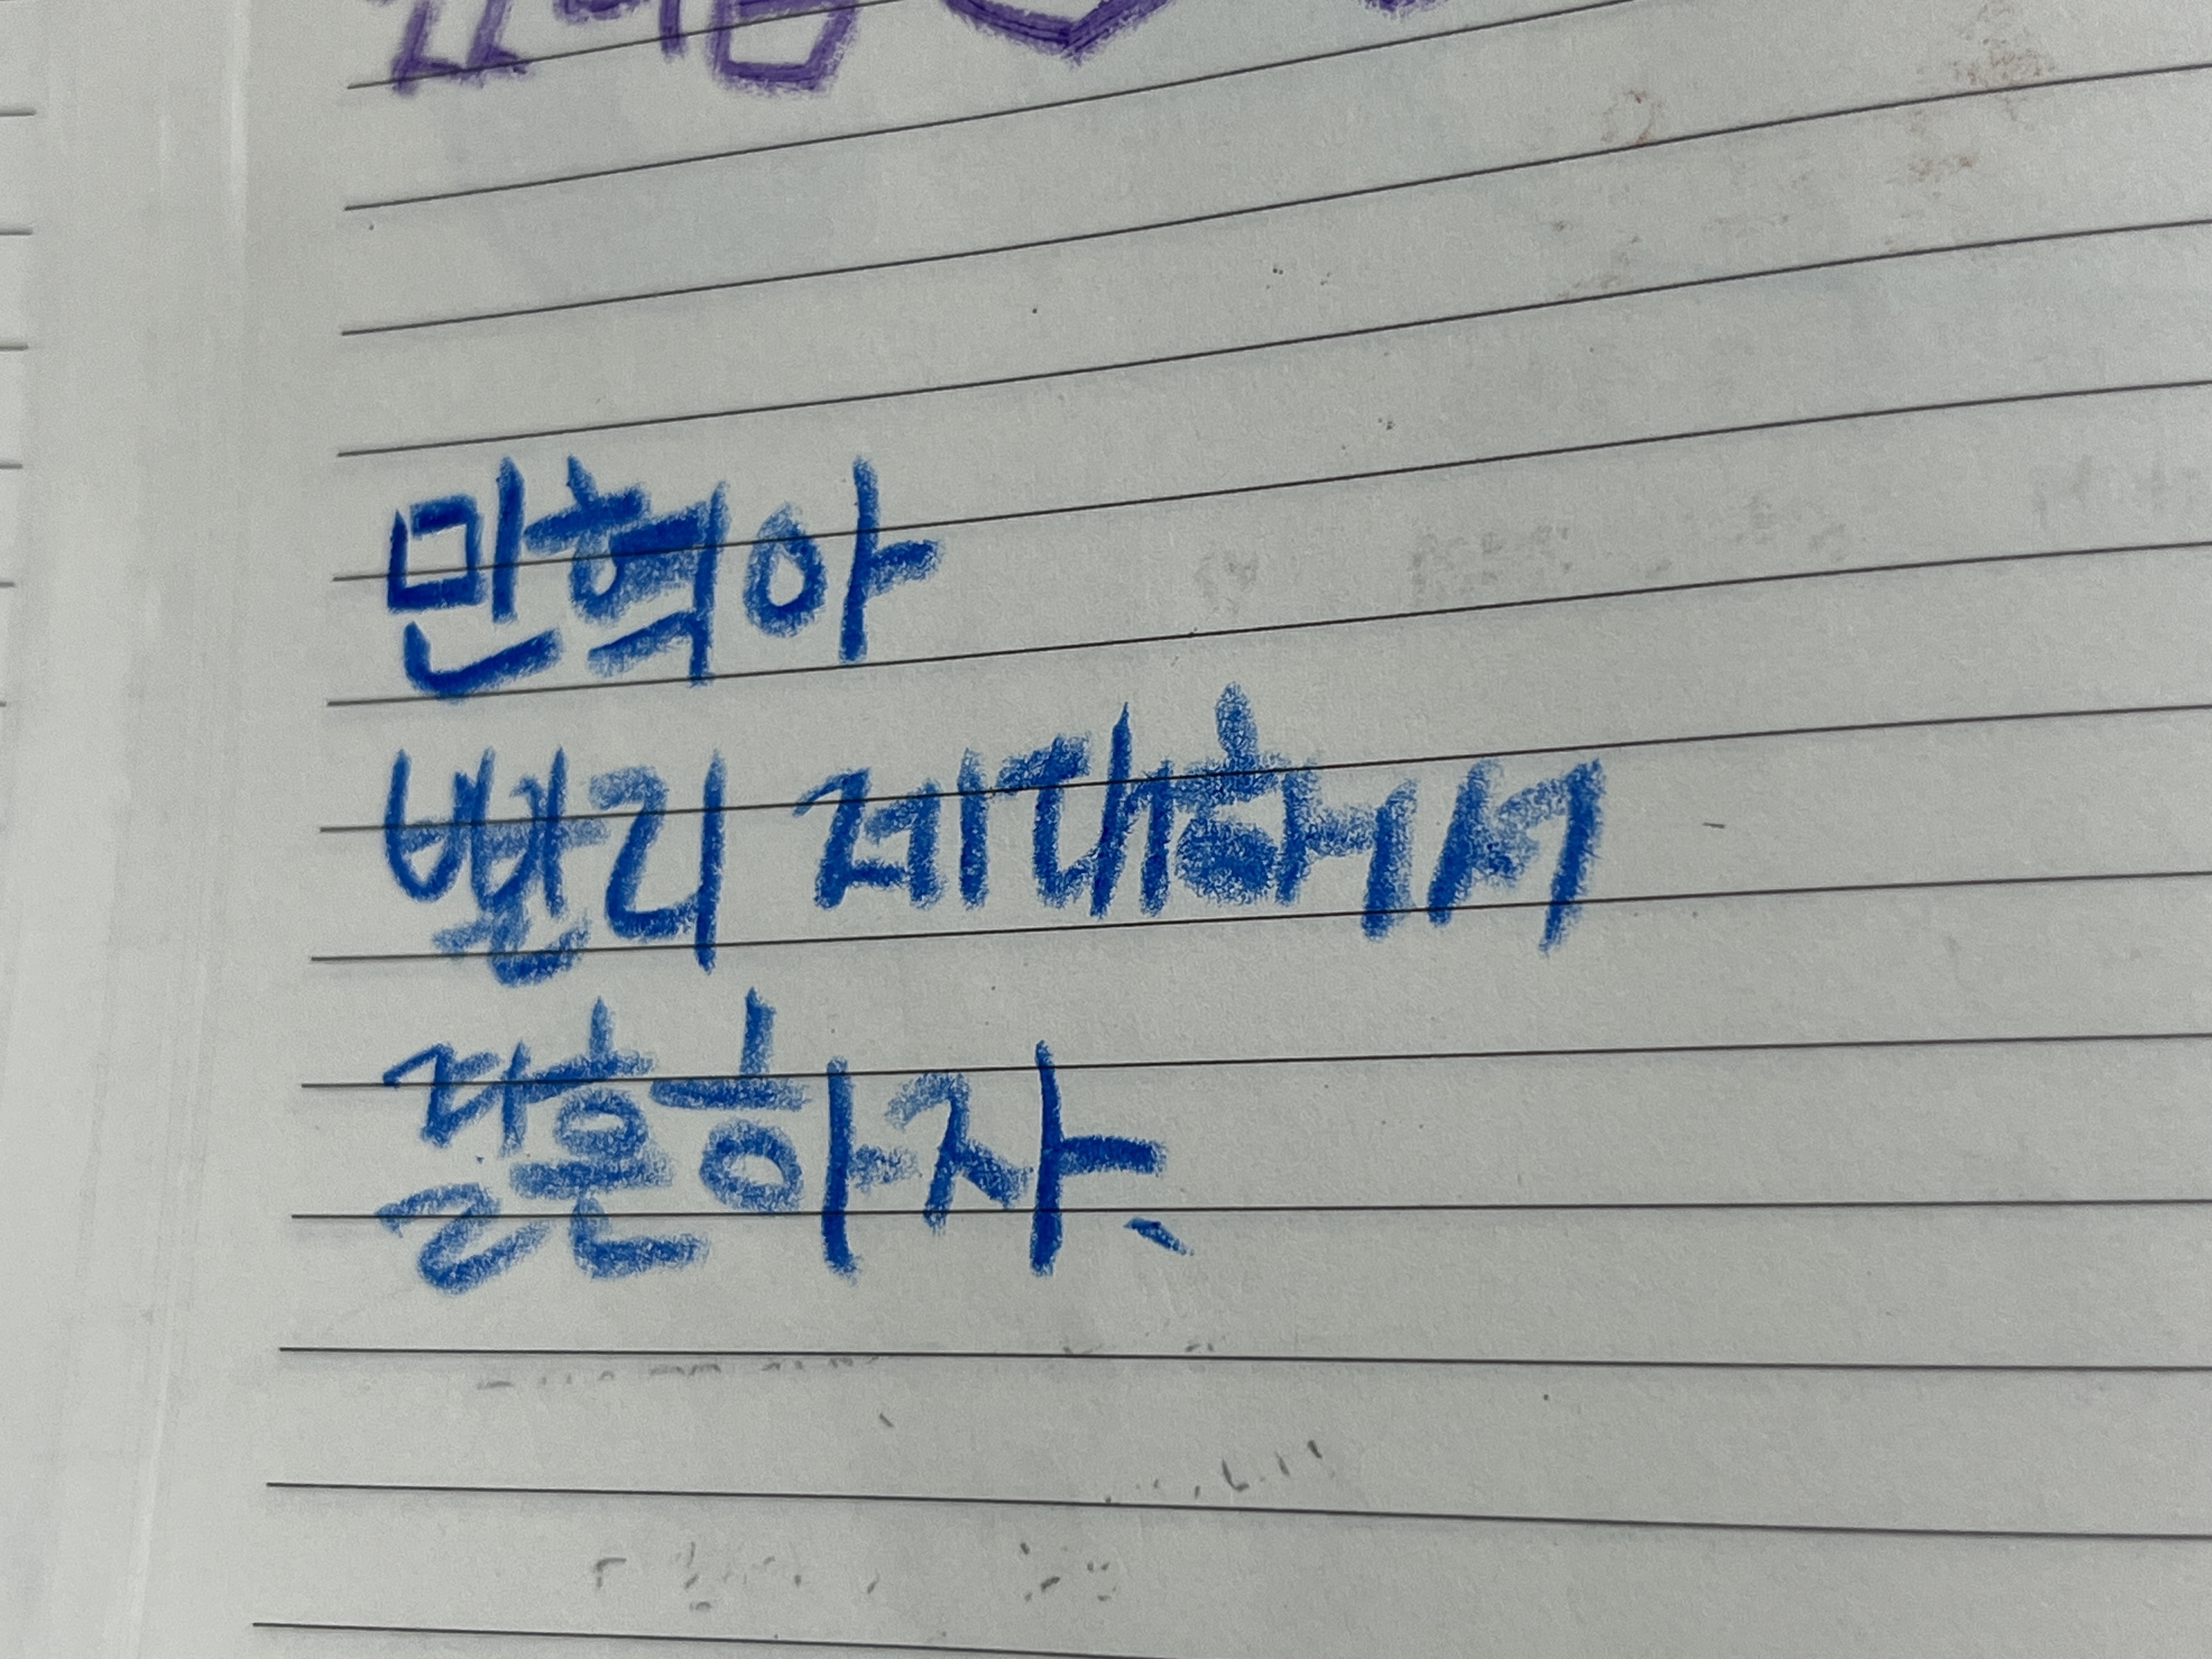 민혁아
빨리 제대해서
결혼하자